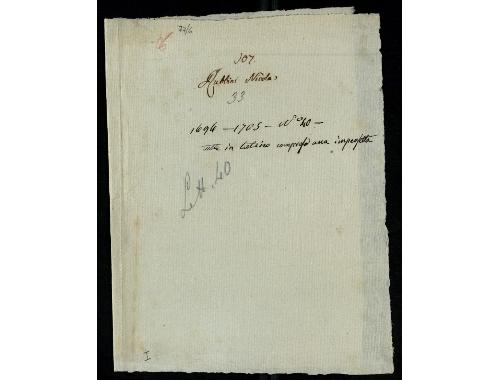 77/6
107.
Rubbini Nicola
33
1694 — 1705 — N.° 40 —
tutte in latino compresa una imperfetta
Lett. 40
I